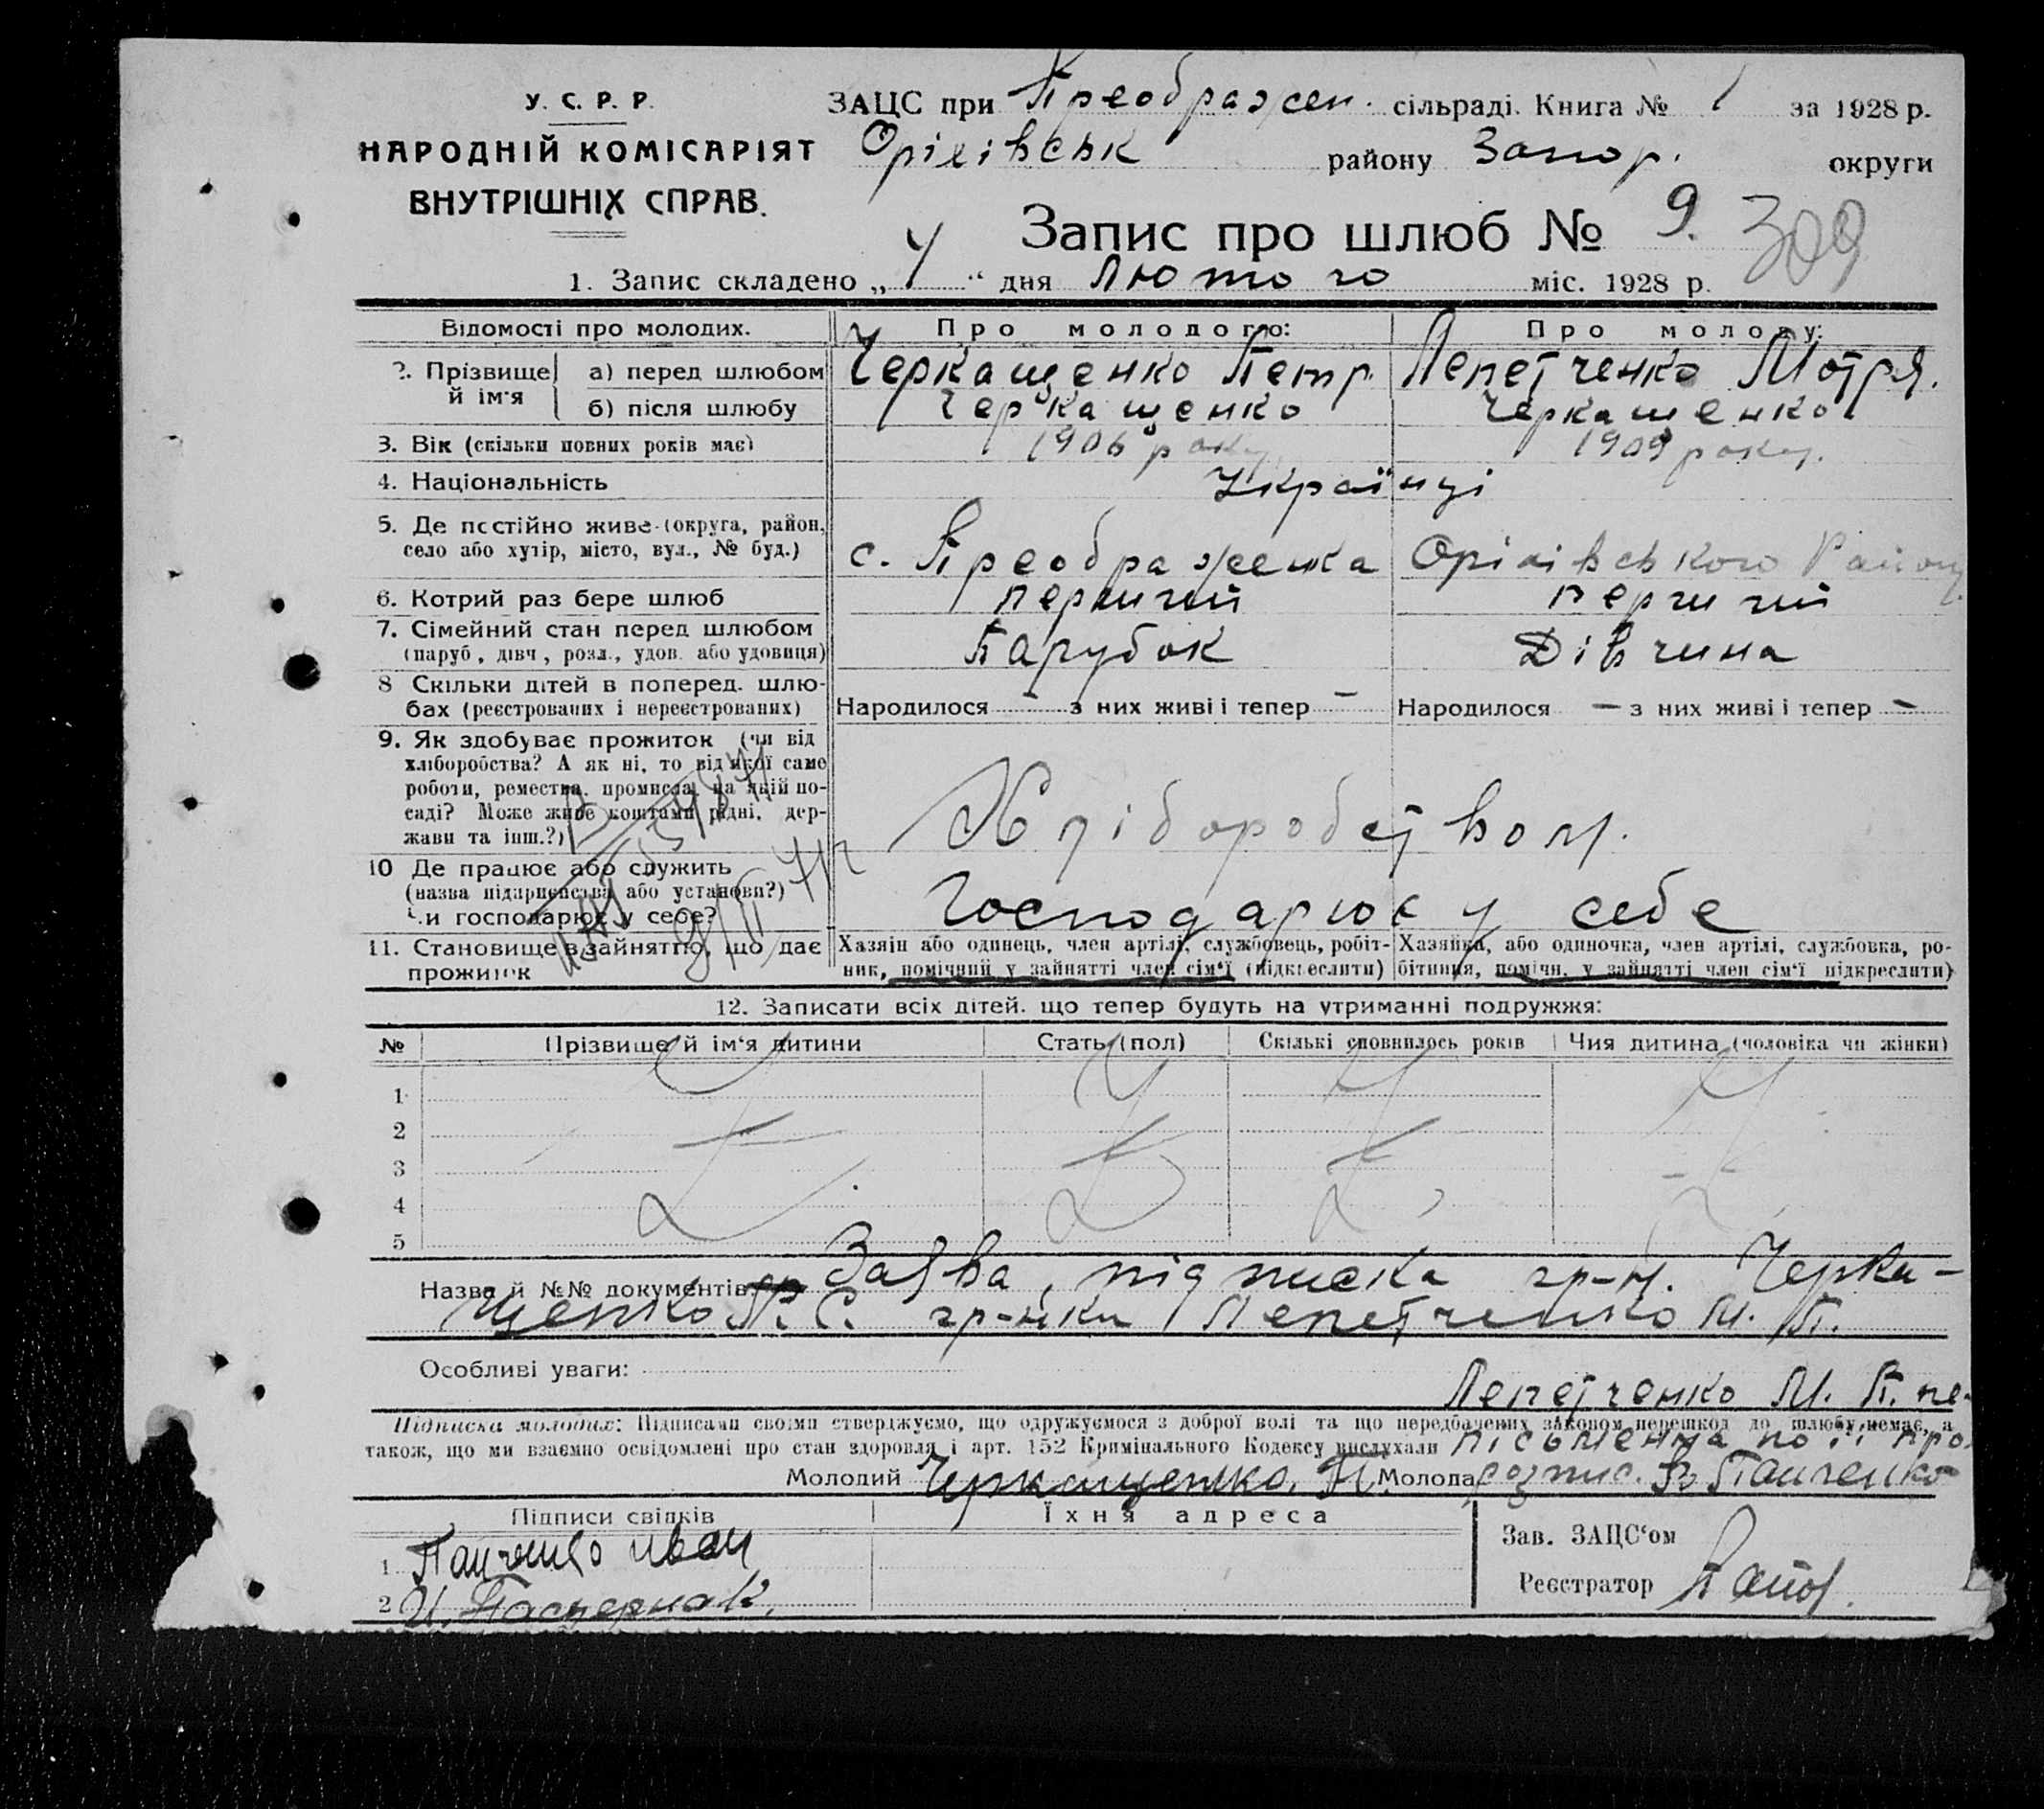 У. С. Р. Р.
НАРОДНІЙ КОМІСАРІЯТ
ВНУТРІШНІХ СПРАВ.
ЗАЦС при Преображен. сільраді. Книга № 1 за 1928 р.
Оріхівськ району Запор. округи
Запис про шлюб № 9. 309
1. Запис складено „ 4 “ дня Лютого міс. 1928 р.
Відомості про молодих. Про молодого: Про молоду:
2. Прізвище й ім'я а) перед шлюбом Черкащенко Петр. Лепетченко Мотря.
б) після шлюбу Черкащенко Черкащенко
3. Вік (скільки повних років має) 1906 року 1909 року.
4. Національність Українці
5. Де постійно живе (округа, район,
село або хутір, місто, вул., № буд.) с. Преображенка Оріхівського Району
6. Котрий раз бере шлюб перший перший
7. Сімейний стан перед шлюбом
(паруб, дівч, розл., удов. або удовиця) Парубок Дівчина
8 Скільки дітей в поперед. шлю-
бах (реєстрованих і нереєстрованих) Народилося — з них живі і тепер — Народилося — з них живі і тепер —
9. Як здобуває прожиток (чи від
хліборобства? А як ні, то від якої саме
роботи, ремества, промисла, на якій по-
саді? Може живе коштами рідні, дер-
жави та інш.?) Хліборобством.
10 Де працює або служить
(назва підприємства або установи?)
Чи господарює у себе? Господарює у себе
11. Становище в зайнятті, що дає
прожиток
Хазяїн або одинець, член артілі, службовець, робіт-
ник, помічний у зайнятті член сім'ї (підкреслити)
Хазяйка, або одиночка, член артілі, службовка, ро-
бітниця, помічн. у зайнятті член сім'ї підкреслити)
12. Записати всіх дітей, що тепер будуть на утриманні подружжя:
№ Прізвище й ім'я дитини Стать (пол) Скількі сповнилось років Чия дитина (чоловіка чи жінки)
1
2
3
4
5
Назва й №№ документів Заява, підписка гр-н. Черка-
щенко П. С. гр-нки Лепетченко М. П.
Особливі уваги:
Лепетченко М. П. не-
Підписка молодих: Підписами своїми стверджуємо, що одружуємося з доброї волі та що передбачених законом перешкод до шлюбу немає, а
також, що ми взаємно освідомлені про стан здоровля і арт. 152 Кримінального Кодексу вислухали письменна по її про
Молодий Черкащенко. П. Молода розпис. В Панченко
Підписи свідків Їхня адреса
1. Панченко иван
2 И. Пастернак.
Зав. ЗАЦС'ом
Реєстратор